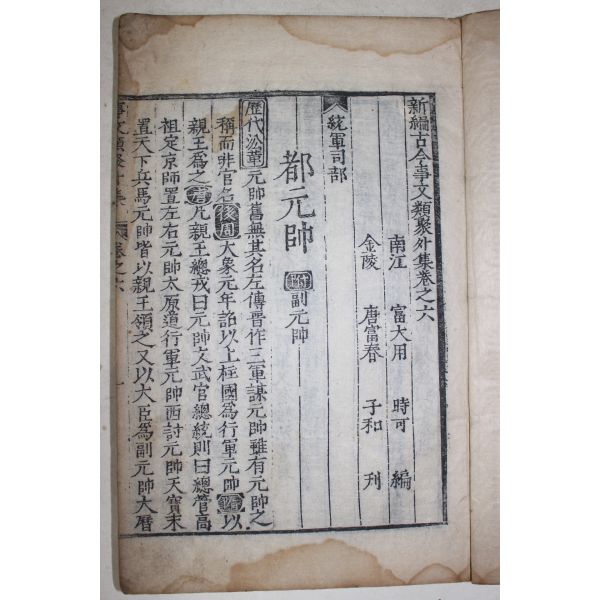 新編古今事文類聚外集卷之六
南江 富大用 時可 編
金陵 唐富春 子和 刋
統軍司部
都元帥 副元帥
歷代沿革 元帥舊無其名左傳晉作三軍謀元帥雖有元帥之
稱而非官名 後周 大象元年詔以上柱國爲行軍元帥 以
親王爲之 凡親王總戎曰元帥文武官總統則曰總管高
祖定京師置左右元帥太原道行軍元帥西討元帥天寶末
置天下兵馬元帥皆以親王領之又以大臣爲副元帥大曆
事文類聚外集 卷之六 一